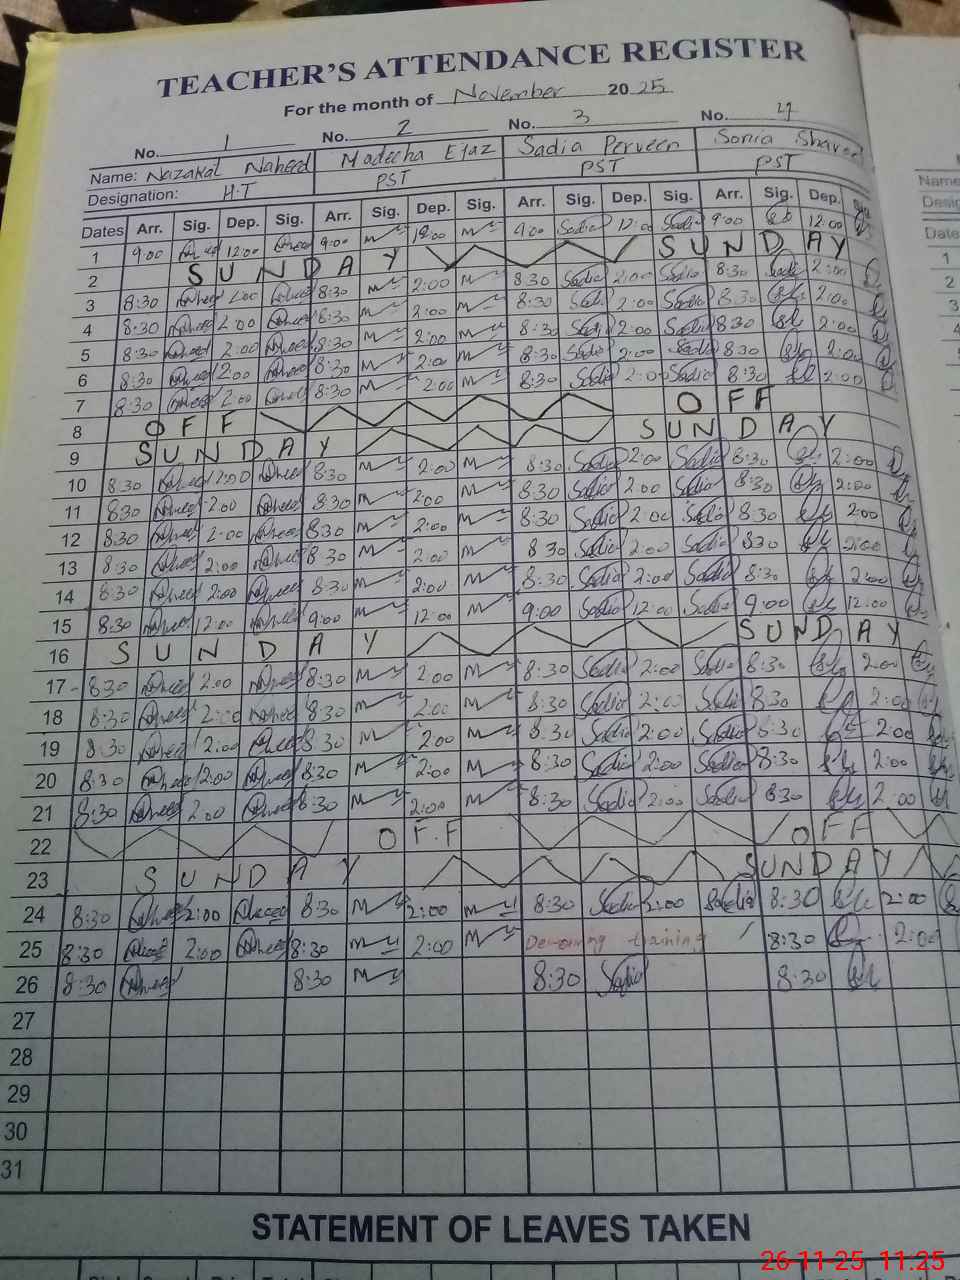 TEACHER'S ATTENDANCE REGISTER
For the month of November 2025
No. 1 No. 2 No. 3 No. 4
Name: Nazakat Naheed Madeeha Ejaz Sadia Perveen Sonia
Designation: H.T PST PST PST
Dates Arr. Sig. Dep. Sig. Arr. Sig. Dep. Sig. Arr. Sig. Dep. Sig. Arr. Sig. Dep.
1 9:00 12:00 9:00 12:00 9:00 Sadia 12:00 Sadia 9:00 12:00
2 SUNDAY SUNDAY
3 8:30 Naheed 2:00 Naheed 8:30 2:00 8:30 Sadia 2:00 Sadia 8:30 2:00
4 8:30 Naheed 2:00 Naheed 8:30 2:00 8:30 Sadia 2:00 Sadia 8:30 2:00
5 8:30 Naheed 2:00 Naheed 8:30 2:00 8:30 Sadia 2:00 Sadia 8:30 2:00
6 8:30 Naheed 2:00 Naheed 8:30 2:00 8:30 Sadia 2:00 Sadia 8:30 2:00
7 8:30 Naheed 2:00 Naheed 8:30 2:00 8:30 Sadia 2:00 Sadia 8:30 2:00
8 OFF OFF
9 SUNDAY SUNDAY
10 8:30 Naheed 2:00 Naheed 8:30 2:00 8:30 Sadia 2:00 Sadia 8:30 2:00
11 8:30 Naheed 2:00 Naheed 8:30 2:00 8:30 Sadia 2:00 Sadia 8:30 2:00
12 8:30 Naheed 2:00 Naheed 8:30 2:00 8:30 Sadia 2:00 Sadia 8:30 2:00
13 8:30 Naheed 2:00 Naheed 8:30 2:00 8 30 Sadia 2:00 Sadia 8:30 2:00
14 8:30 Naheed 2:00 Naheed 8:30 2:00 8:30 Sadia 2:00 Sadia 8:30 2:00
15 8:30 Naheed 12:00 Naheed 9:00 12:00 9:00 Sadia 12:00 Sadia 9:00 12:00
16 SUNDAY SUNDAY
17 8:30 Naheed 2:00 Naheed 8:30 2:00 8:30 Sadia 2:00 Sadia 8:30 2:00
18 8:30 Naheed 2:00 Naheed 8:30 2:00 8:30 Sadia 2:00 Sadia 8:30 2:00
19 8:30 Naheed 2:00 Naheed 8:30 2:00 8:30 Sadia 2:00 Sadia 8:30 2:00
20 8:30 Naheed 2:00 Naheed 8:30 2:00 8:30 Sadia 2:00 Sadia 8:30 2:00
21 8:30 Naheed 2:00 Naheed 8:30 2:00 8:30 Sadia 2:00 Sadia 8:30 2:00
22 OFF OFF
23 SUNDAY SUNDAY
24 8:30 Naheed 2:00 Naheed 8:30 2:00 8:30 Sadia 2:00 Sadia 8:30 2:00
25 8:30 Naheed 2:00 Naheed 8:30 2:00 training 8:30 2:00
26 8:30 Naheed 8:30 8:30 Sadia 8:30
27
28
29
30
31
STATEMENT OF LEAVES TAKEN
26-11-25 11:25